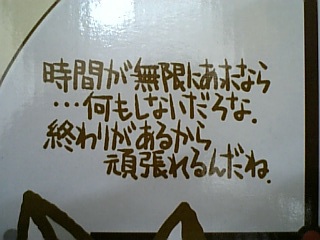 時間が無限にあったなら
…何もしないだろな.
終わりがあるから
頑張れるんだね.